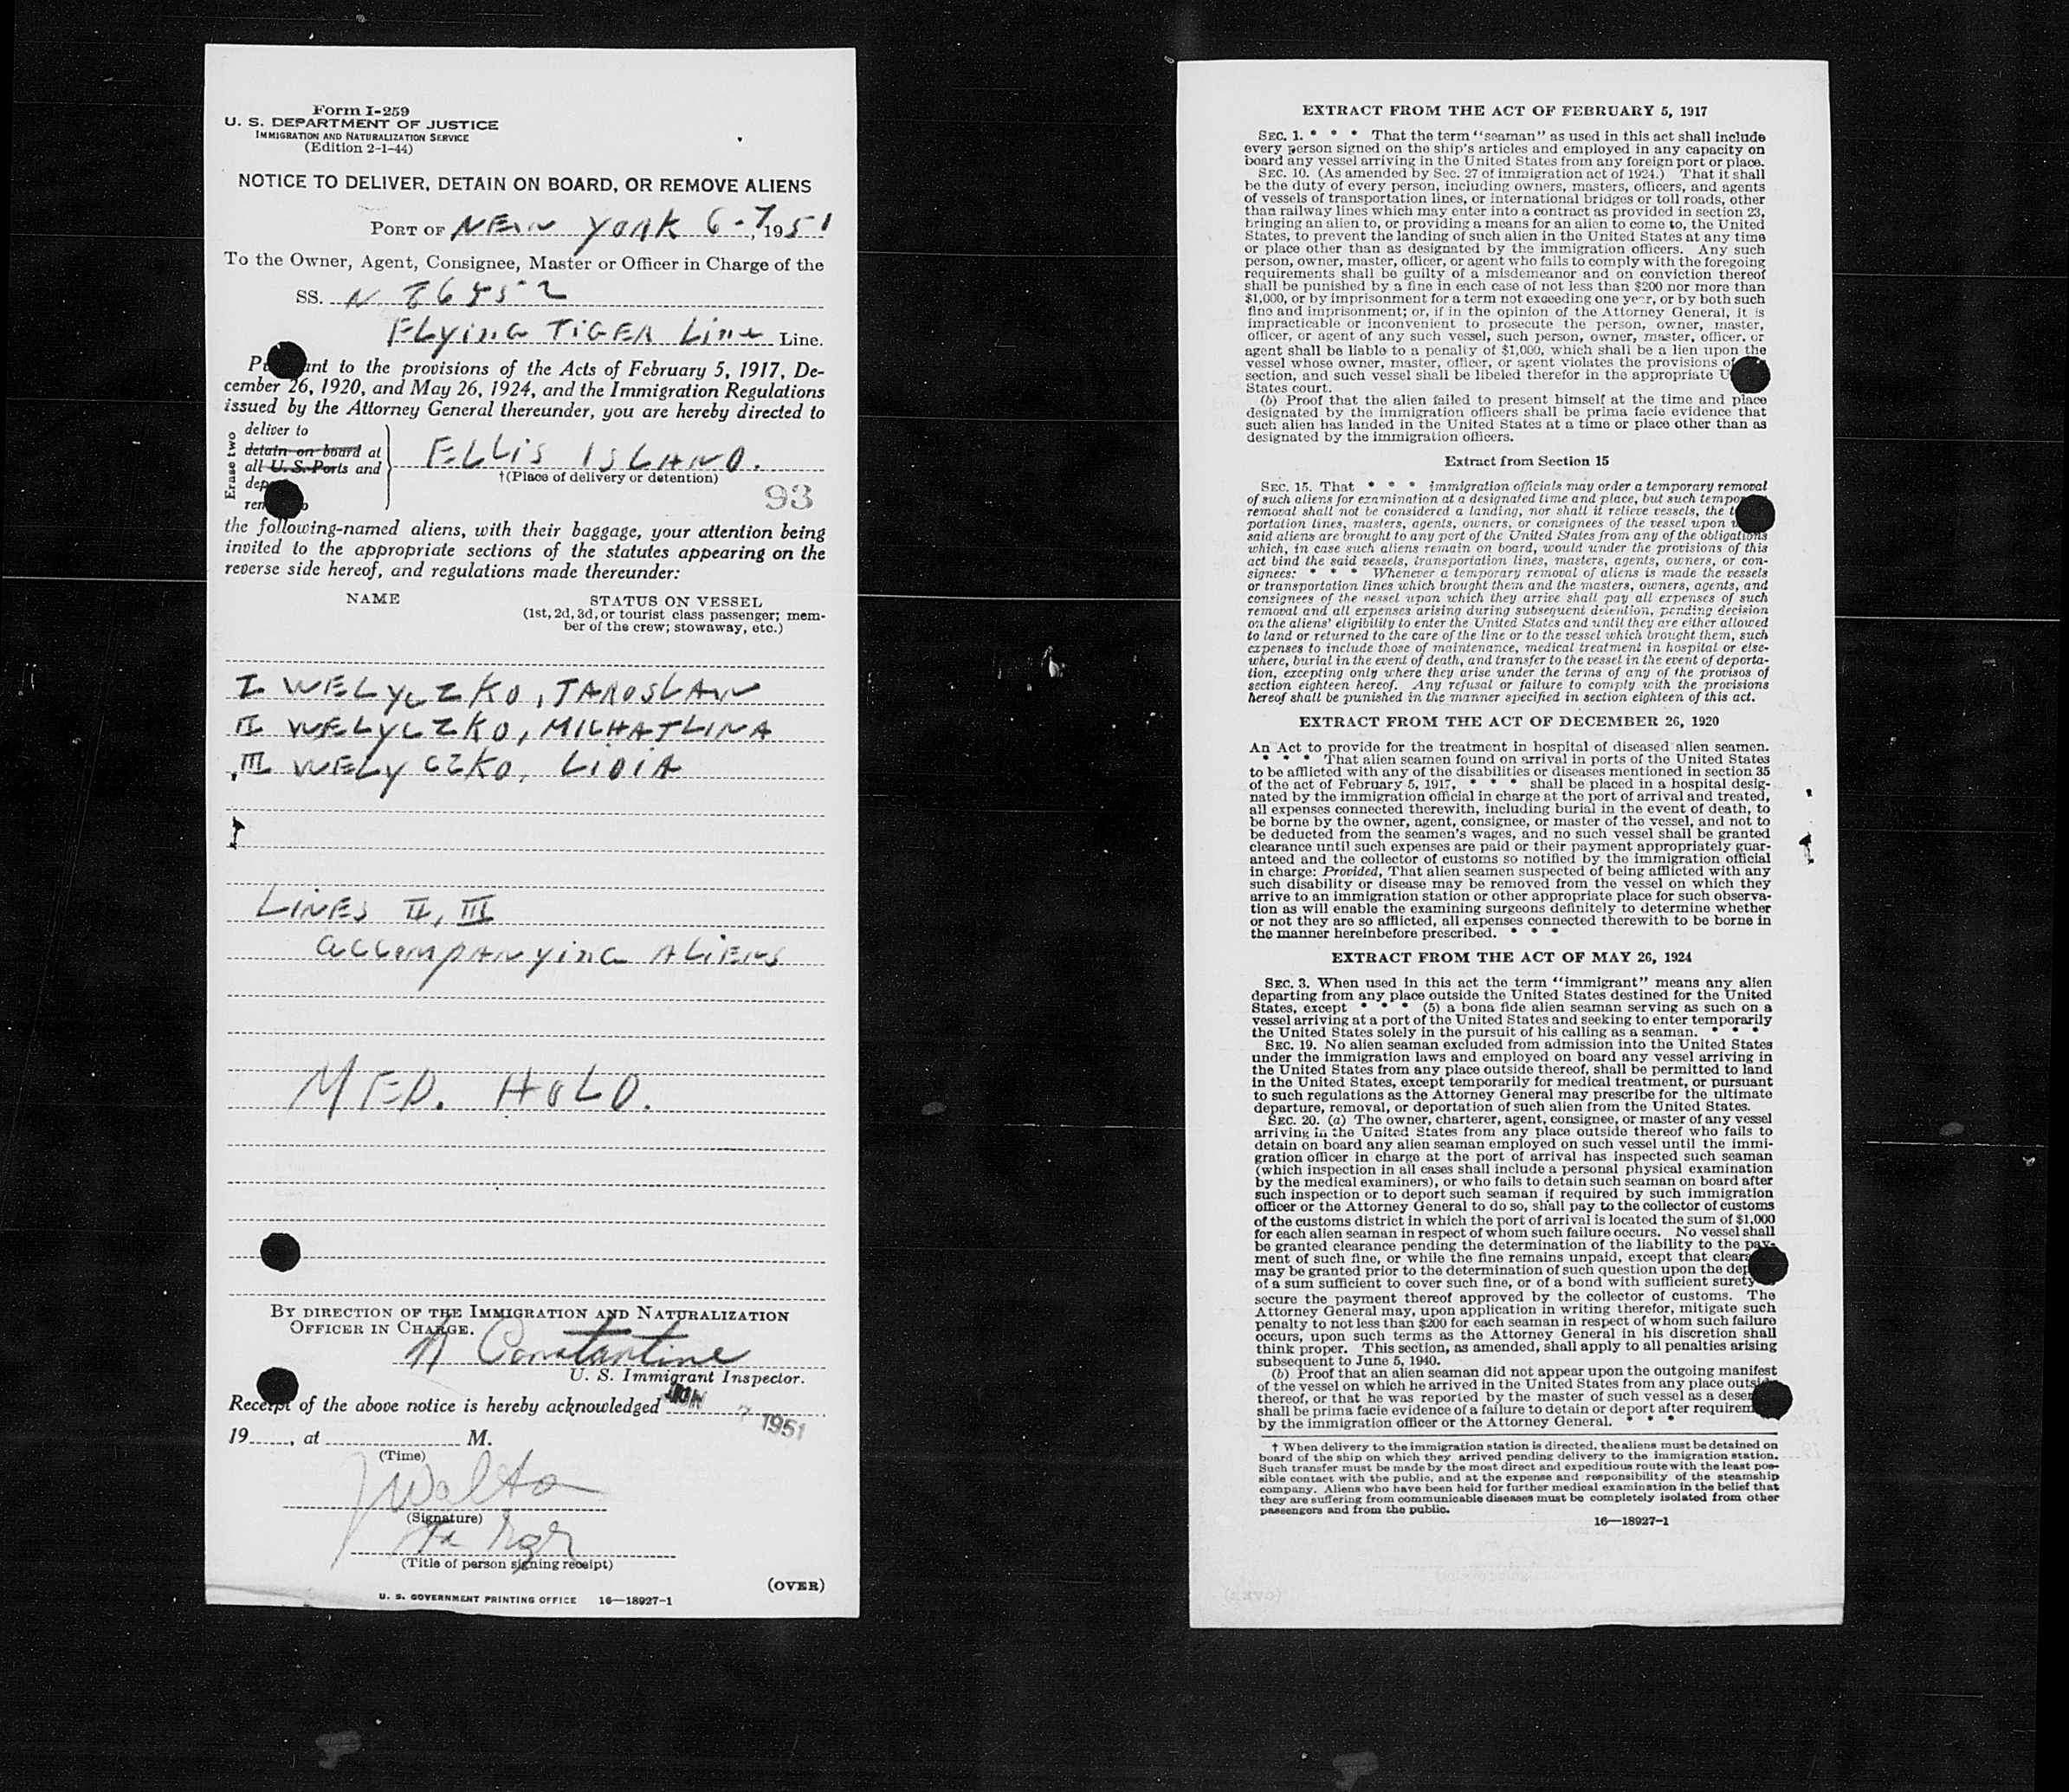 Form I-259
U. S. DEPARTMENT OF JUSTICE
IMMIGRATION AND NATURALIZATION SERVICE
(Edition 2-1-44)
NOTICE TO DELIVER, DETAIN ON BOARD, OR REMOVE ALIENS
PORT OF NEW YORK 6-7, 1951
To the Owner, Agent, Consignee, Master or Officer in Charge of the
SS. N
FLYING TIGER Line Line.
to the provisions of the Acts of February 5, 1917, De-
cember 26, 1920, and May 26, 1924, and the Immigration Regulations
issued by the Attorney General thereunder, you are hereby directed to
Erase two
deliver to
detain on board at
all U. S. Ports and
ELLIS ISLAND.
†(Place of delivery or detention)
93
the following-named aliens, with their baggage, your attention being
invited to the appropriate sections of the statutes appearing on the
reverse side hereof, and regulations made thereunder:
NAME STATUS ON VESSEL
(1st, 2d, 3d, or tourist class passenger; mem-
ber of the crew; stowaway, etc.)
I WELYCZKO, JAROSLAW
II WELYCZKO, MICHAJLINA
III WELYCZKO, LIDIA
LINES II, III
accompanying ALIENS
MED. HOLD.
BY DIRECTION OF THE IMMIGRATION AND NATURALIZATION
OFFICER IN CHARGE.
Constantine
U. S. Immigrant Inspector.
Receipt of the above notice is hereby acknowledged JUN 7 1951
19......, at .................... M.
(Time)
(Signature)
(Title of person signing receipt)
(OVER)
U. S. GOVERNMENT PRINTING OFFICE 16—18927-1
EXTRACT FROM THE ACT OF FEBRUARY 5, 1917
SEC. 1. * * * That the term "seaman" as used in this act shall include
every person signed on the ship's articles and employed in any capacity on
board any vessel arriving in the United States from any foreign port or place.
SEC. 10. (As amended by Sec. 27 of immigration act of 1924.) That it shall
be the duty of every person, including owners, masters, officers, and agents
of vessels of transportation lines, or international bridges or toll roads, other
than railway lines which may enter into a contract as provided in section 23,
bringing an alien to, or providing a means for an alien to come to, the United
States, to prevent the landing of such alien in the United States at any time
or place other than as designated by the immigration officers. Any such
person, owner, master, officer, or agent who fails to comply with the foregoing
requirements shall be guilty of a misdemeanor and on conviction thereof
shall be punished by a fine in each case of not less than $200 nor more than
$1,000, or by imprisonment for a term not exceeding one year, or by both such
fine and imprisonment; or, if in the opinion of the Attorney General, it is
impracticable or inconvenient to prosecute the person, owner, master,
officer, or agent of any such vessel, such person, owner, master, officer, or
agent shall be liable to a penalty of $1,000, which shall be a lien upon the
vessel whose owner, master, officer, or agent violates the provisions of
section, and such vessel shall be libeled therefor in the appropriate U
States court.
(b) Proof that the alien failed to present himself at the time and place
designated by the immigration officers shall be prima facie evidence that
such alien has landed in the United States at a time or place other than as
designated by the immigration officers.
Extract from Section 15
SEC. 15. That * * * immigration officials may order a temporary removal
of such aliens for examination at a designated time and place, but such tempor
removal shall not be considered a landing, nor shall it relieve vessels, the t
portation lines, masters, agents, owners, or consignees of the vessel upon
said aliens are brought to any port of the United States from any of the obligations
which, in case such aliens remain on board, would under the provisions of this
act bind the said vessels, transportation lines, masters, agents, owners, or con-
signees: * * * Whenever a temporary removal of aliens is made the vessels
or transportation lines which brought them and the masters, owners, agents, and
consignees of the vessel upon which they arrive shall pay all expenses of such
removal and all expenses arising during subsequent detention, pending decision
on the aliens' eligibility to enter the United States and until they are either allowed
to land or returned to the care of the line or to the vessel which brought them, such
expenses to include those of maintenance, medical treatment in hospital or else-
where, burial in the event of death, and transfer to the vessel in the event of deporta-
tion, excepting only where they arise under the terms of any of the provisos of
section eighteen hereof. Any refusal or failure to comply with the provisions
hereof shall be punished in the manner specified in section eighteen of this act.
EXTRACT FROM THE ACT OF DECEMBER 26, 1920
An Act to provide for the treatment in hospital of diseased alien seamen.
* * * That alien seamen found on arrival in ports of the United States
to be afflicted with any of the disabilities or diseases mentioned in section 35
of the act of February 5, 1917, * * * shall be placed in a hospital desig-
nated by the immigration official in charge at the port of arrival and treated,
all expenses connected therewith, including burial in the event of death, to
be borne by the owner, agent, consignee, or master of the vessel, and not to
be deducted from the seamen's wages, and no such vessel shall be granted
clearance until such expenses are paid or their payment appropriately guar-
anteed and the collector of customs so notified by the immigration official
in charge: Provided, That alien seamen suspected of being afflicted with any
such disability or disease may be removed from the vessel on which they
arrive to an immigration station or other appropriate place for such observa-
tion as will enable the examining surgeons definitely to determine whether
or not they are so afflicted, all expenses connected therewith to be borne in
the manner hereinbefore prescribed. * * *
EXTRACT FROM THE ACT OF MAY 26, 1924
SEC. 3. When used in this act the term "immigrant" means any alien
departing from any place outside the United States destined for the United
States, except * * * (5) a bona fide alien seaman serving as such on a
vessel arriving at a port of the United States and seeking to enter temporarily
the United States solely in the pursuit of his calling as a seaman. * * *
SEC. 19. No alien seaman excluded from admission into the United States
under the immigration laws and employed on board any vessel arriving in
the United States from any place outside thereof, shall be permitted to land
in the United States, except temporarily for medical treatment, or pursuant
to such regulations as the Attorney General may prescribe for the ultimate
departure, removal, or deportation of such alien from the United States.
SEC. 20. (a) The owner, charterer, agent, consignee, or master of any vessel
arriving in the United States from any place outside thereof who fails to
detain on board any alien seaman employed on such vessel until the immi-
gration officer in charge at the port of arrival has inspected such seaman
(which inspection in all cases shall include a personal physical examination
by the medical examiners), or who fails to detain such seaman on board after
such inspection or to deport such seaman if required by such immigration
officer or the Attorney General to do so, shall pay to the collector of customs
of the customs district in which the port of arrival is located the sum of $1,000
for each alien seaman in respect of whom such failure occurs. No vessel shall
be granted clearance pending the determination of the liability to the pay-
ment of such fine, or while the fine remains unpaid, except that cleara
may be granted prior to the determination of such question upon the dep
of a sum sufficient to cover such fine, or of a bond with sufficient surety
secure the payment thereof approved by the collector of customs. The
Attorney General may, upon application in writing therefor, mitigate such
penalty to not less than $200 for each seaman in respect of whom such failure
occurs, upon such terms as the Attorney General in his discretion shall
think proper. This section, as amended, shall apply to all penalties arising
subsequent to June 5, 1940.
(b) Proof that an alien seaman did not appear upon the outgoing manifest
of the vessel on which he arrived in the United States from any place outside
thereof, or that he was reported by the master of such vessel as a deser
shall be prima facie evidence of a failure to detain or deport after requirem
by the immigration officer or the Attorney General. * * *
† When delivery to the immigration station is directed, the aliens must be detained on
board of the ship on which they arrived pending delivery to the immigration station.
Such transfer must be made by the most direct and expeditious route with the least pos-
sible contact with the public, and at the expense and responsibility of the steamship
company. Aliens who have been held for further medical examination in the belief that
they are suffering from communicable diseases must be completely isolated from other
passengers and from the public.
16—18927-1